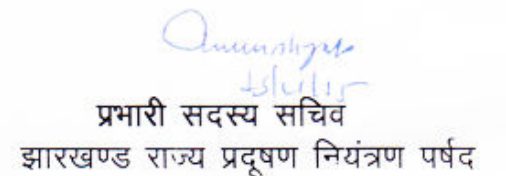 प्रभारी सदस्य सचिव
झारखण्ड राज्य प्रदूषण नियंत्रण पर्षद